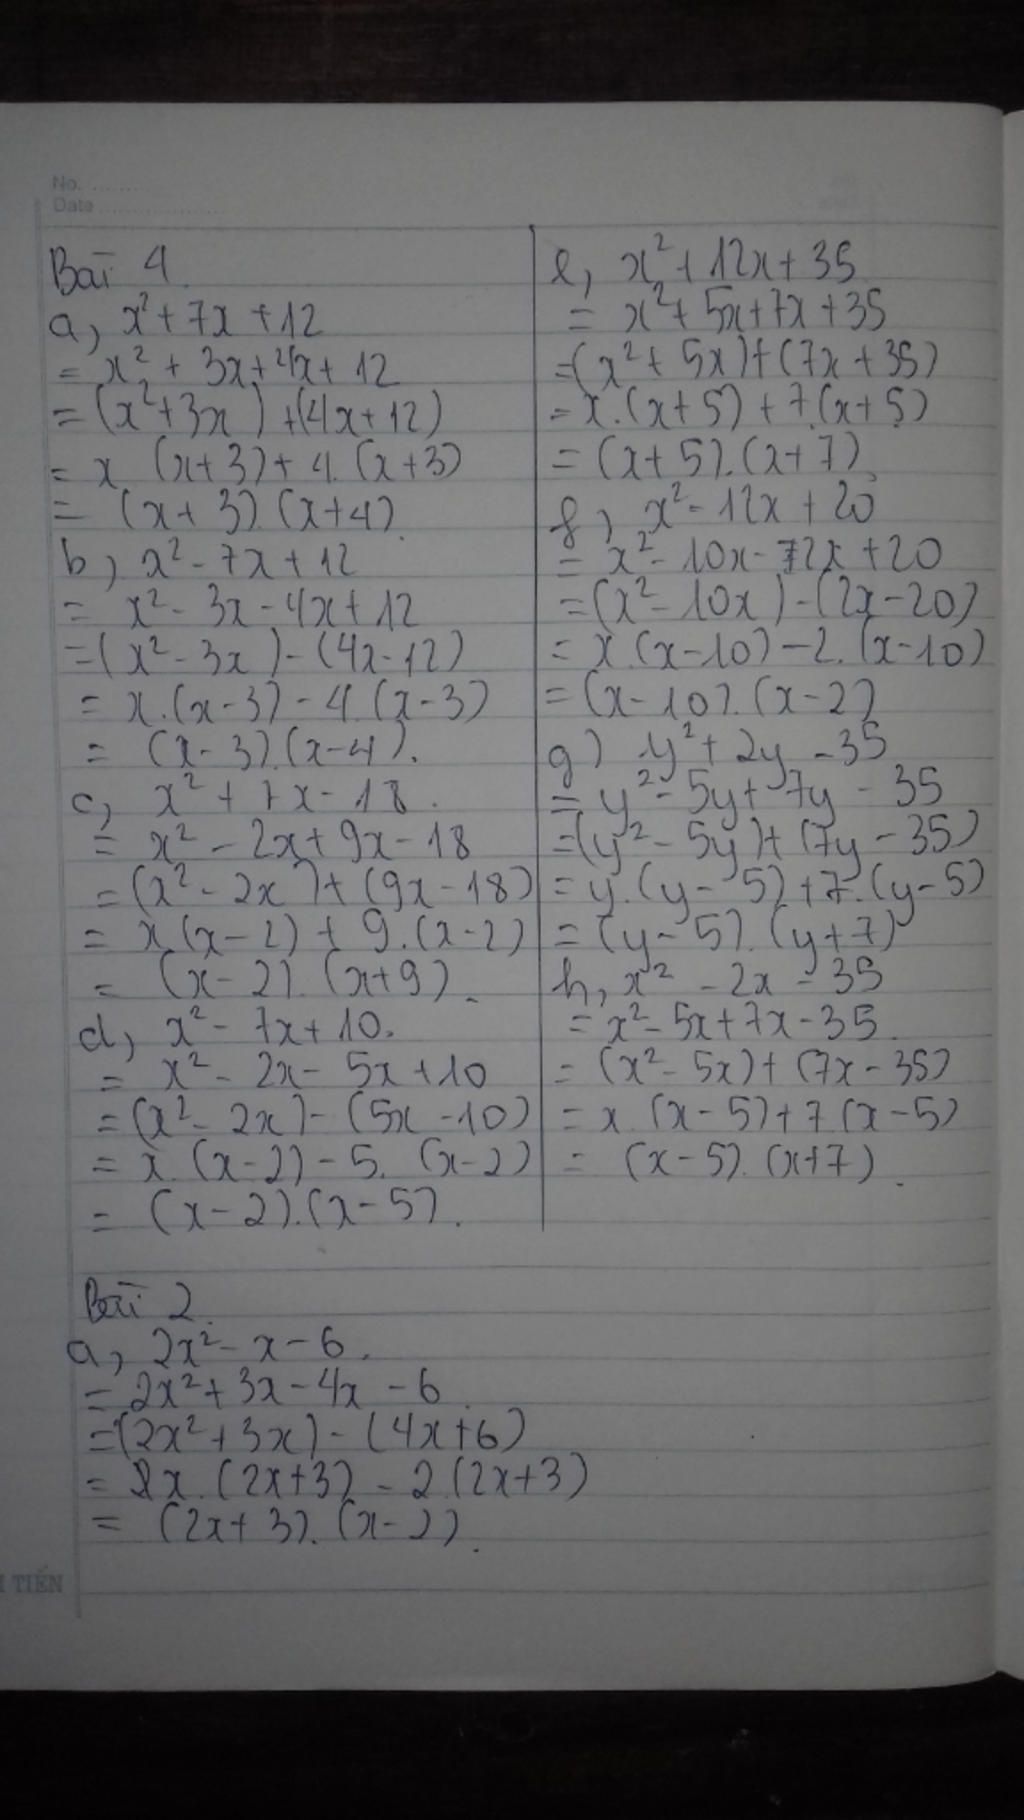 No. ........
Date ....................
Bài 4.
a, x² + 7x + 12
= x² + 3x + 4x + 12
= (x² + 3x) + (4x + 12)
= x (x + 3) + 4. (x + 3)
= (x + 3). (x + 4).
b, x² - 7x + 12
= x² - 3x - 4x + 12
= (x² - 3x) - (4x - 12)
= x.(x - 3) - 4.(x - 3)
= (x - 3).(x - 4).
c, x² + 7x - 18.
= x² - 2x + 9x - 18
= (x² - 2x) + (9x - 18)
= x.(x - 2) + 9.(x - 2)
= (x - 2). (x + 9).
d, x² - 7x + 10.
= x² - 2x - 5x + 10
= (x² - 2x) - (5x - 10)
= x. (x - 2) - 5. (x - 2)
= (x - 2).(x - 5).
e, x² + 12x + 35
= x² + 5x + 7x + 35
= (x² + 5x) + (7x + 35)
= x.(x + 5) + 7.(x + 5)
= (x + 5).(x + 7).
f, x² - 12x + 20
= x² - 10x - 2x + 20
= (x² - 10x) - (2x - 20)
= x.(x - 10) - 2.(x - 10)
= (x - 10).(x - 2)
g) y² + 2y - 35
= y² - 5y + 7y - 35
= (y² - 5y) + (7y - 35)
= y.(y - 5) + 7.(y - 5)
= (y - 5).(y + 7)
h, x² - 2x - 35
= x² - 5x + 7x - 35.
= (x² - 5x) + (7x - 35)
= x. (x - 5) + 7.(x - 5)
= (x - 5). (x + 7).
Bài 2.
a, 2x² - x - 6.
= 2x² + 3x - 4x - 6
= (2x² + 3x) - (4x + 6)
= x.(2x + 3) - 2.(2x + 3)
= (2x + 3). (x - 2).
TIẾN